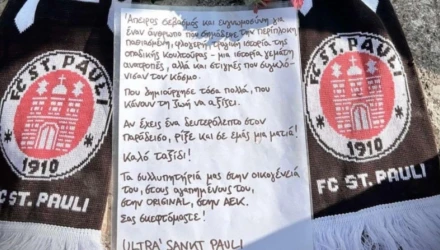 Άπειρος σεβασμός και ευγνωμοσύνη για
έναν άνθρωπο που σημάδεψε την περίπλοκη
παθιασμένη, φλογερή, τραγική ιστορία της
οπαδικής κουλτούρας - μια ιστορία γεμάτη
ανατροπές, αλλά και στιγμές που συγκλό-
νισαν τον κόσμο.
Που δημιούργησε τόσα πολλά, που
κάνουν τη ζωή να αξίζει.
Αν έχεις ένα δευτερόλεπτο στον
παράδεισο, ρίξε και σε εμάς μια ματιά!
Καλό ταξίδι!
Τα συλλυπητήριά μας στην οικογένειά
του, στους αγαπημένους του,
στην ORIGINAL, στην ΑΕΚ.
Σας σκεφτόμαστε!
ULTRA' SANKT PAULI
FC ST. PAULI
1910
FC ST. PAULI
FC ST. PAULI
1910
FC ST. PAULI